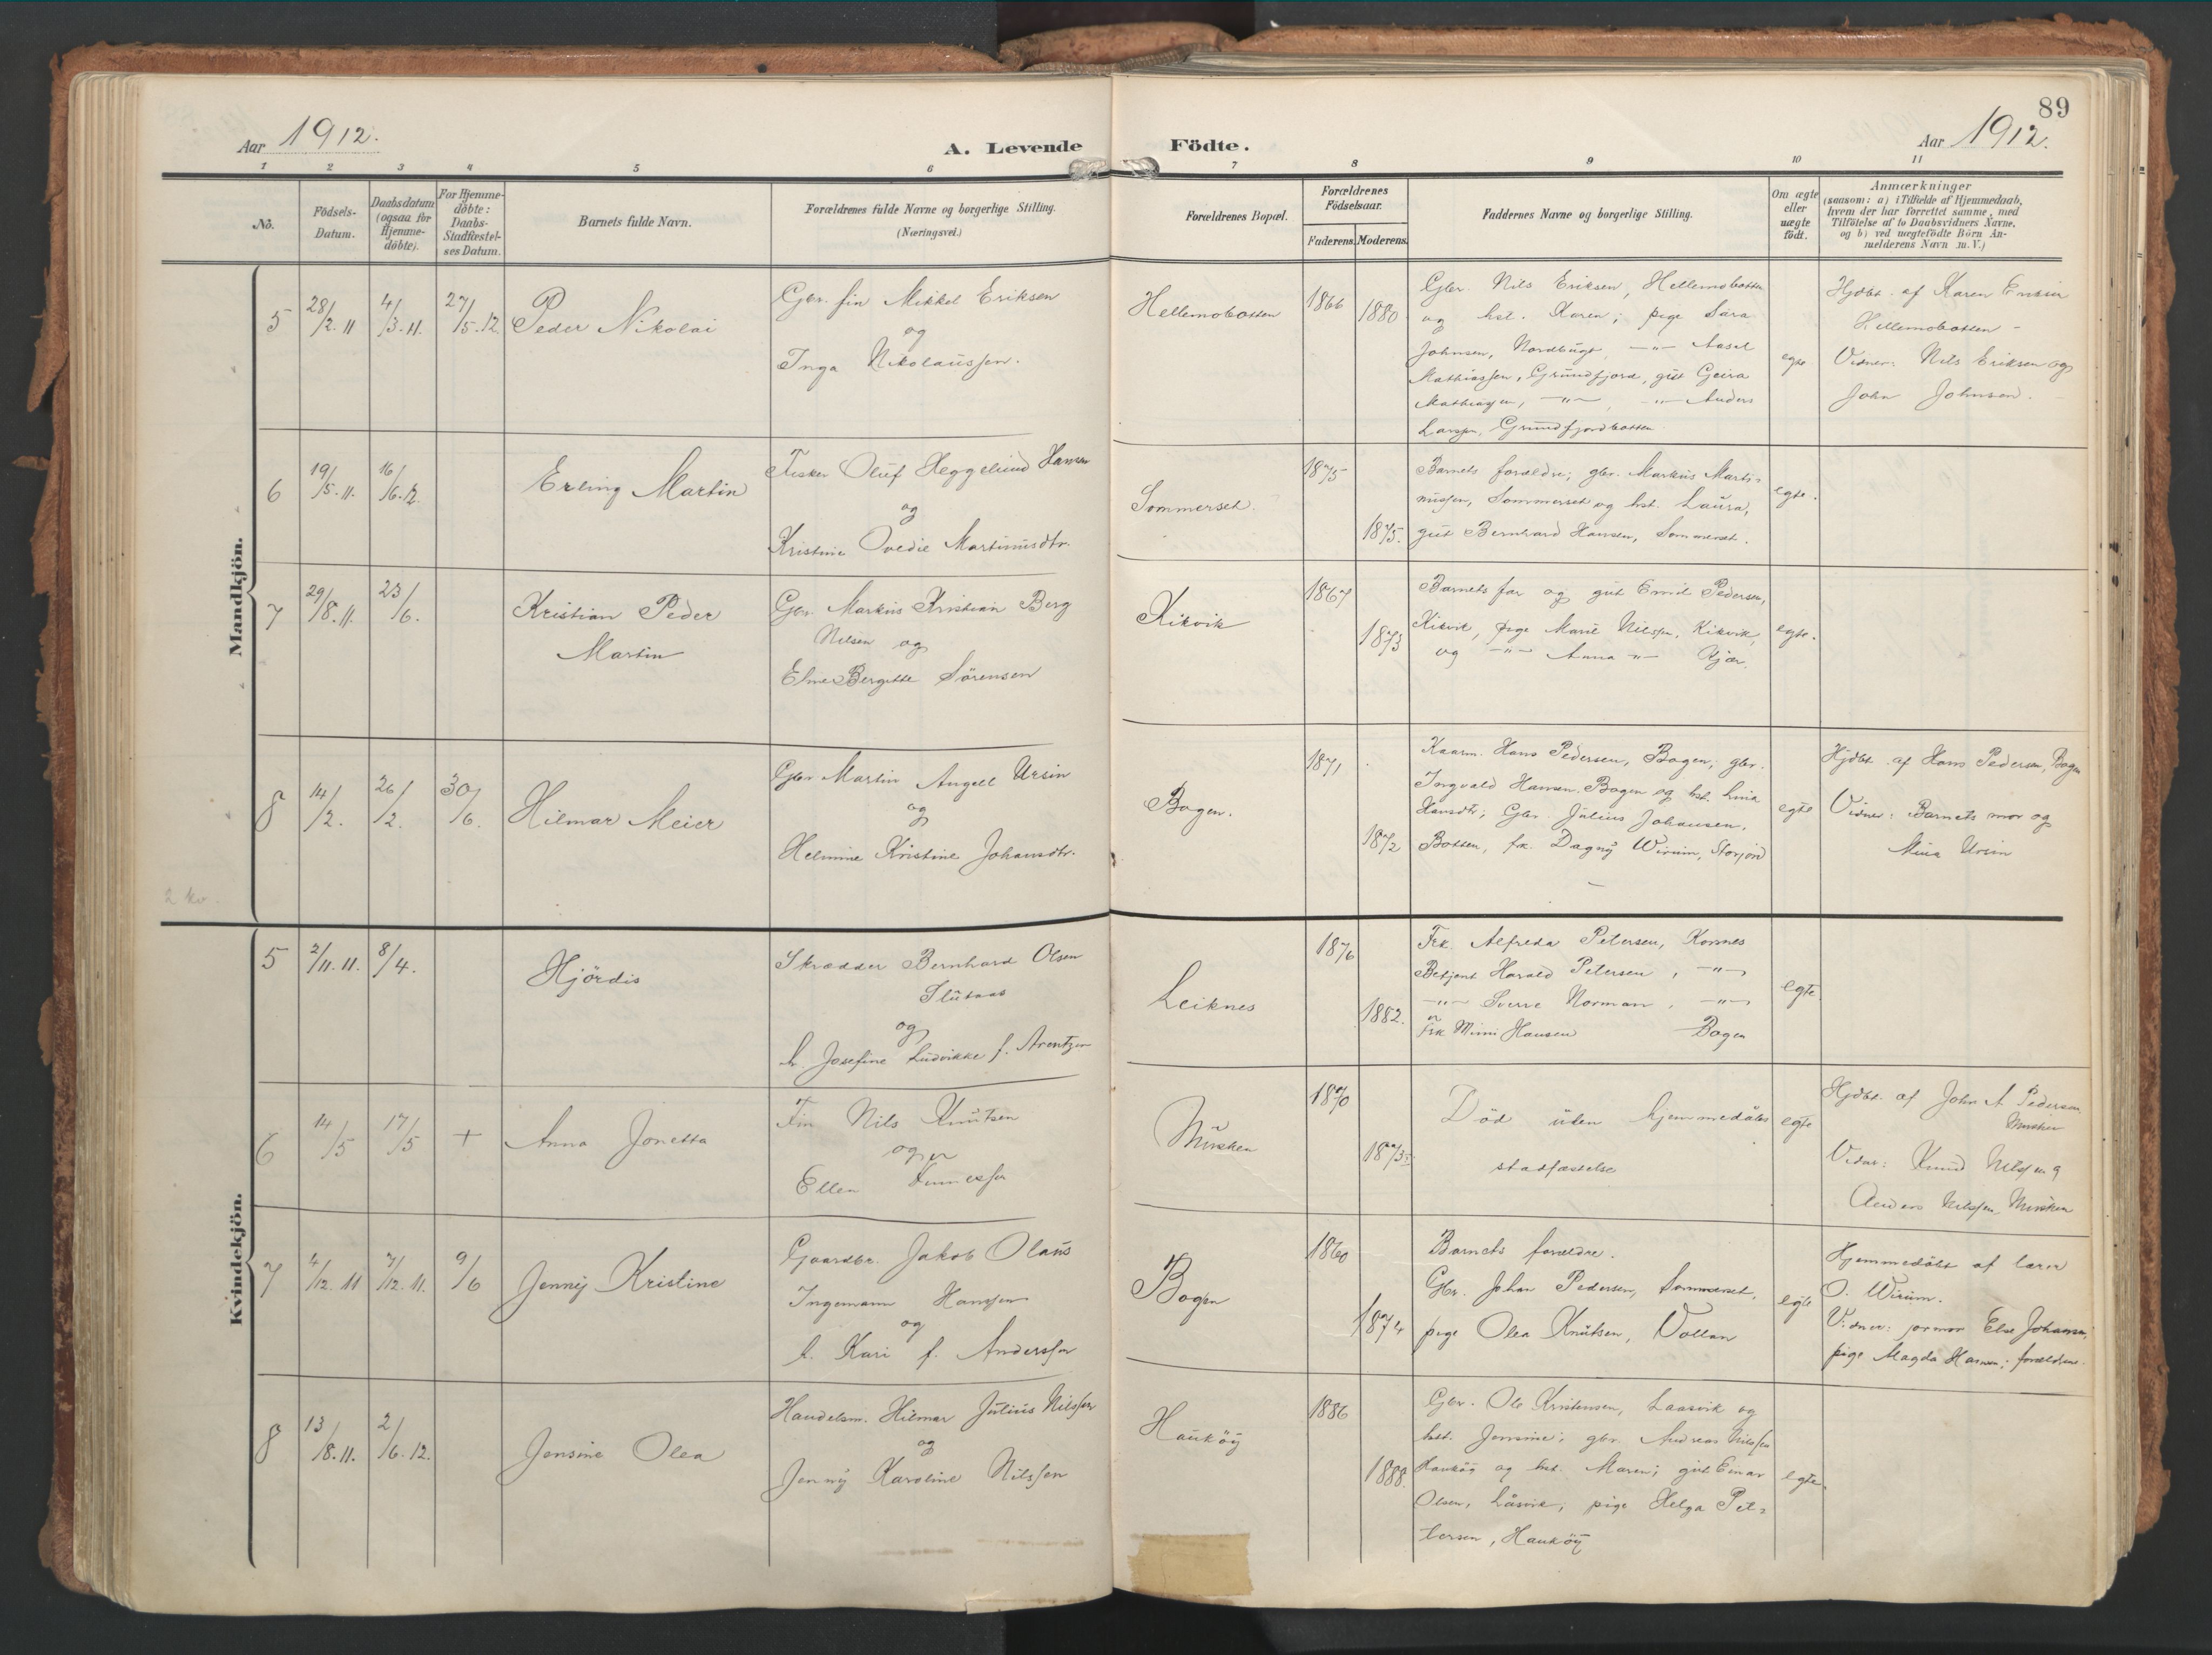 89
Aar 1912.
A. Levende Födte.
Aar 1912.
1 2 3 4 5 6 7 8 9 10 11
No.
Födsels-Datum.
Daabsdatum (ogsaa for Hjemme-döbte).
For Hjemme-döbte: Daabs-Stadfæstel-ses Datum.
Barnets fulde Navn.
Forældrenes fulde Navne og borgerlige Stilling.
(Næringsvei.)
Forældrenes Bopæl.
Forældrenes Födselsaar.
Faderens. Moderens.
Faddernes Navne og borgerlige Stilling.
Om ægte eller uægte födt.
Anmærkninger
(saasom: a) i Tilfælde af Hjemmedaab,
hvem der har forrettet samme, med
Tilföielse af to Daabsvidners Navne,
og b) ved uægtefödte Börn An-
melderens Navn m. V.)
Mandkjön.
5 28/2.11 4/3.11. 27/5.12. Peder Nikolai
Gbr. fin Mikkel Eriksen
og
Inga Nikolaussen.
Hellemobotten 1866 1880
Gbr. Nils Eriksen, Hellemobotten
og hst. Karen; pige Sara
Johnsen, Nordbugt, —"— Aasel
Mathiassen, Grundfjord, gut Geira
Mathiassen, —"— , —"— Anders
Larssen, Grundfjordbotten.
egte
Hjdbt. af Karen Eriksen
Hellemobotten –
Vidner: Nils Eriksen og
John Johnsen.
6 19/5.11. 16/6.12. Erling Martin
Fisker Oluf Heggelund Hansen
og
Kristine Ovedie Martinusdtr.
Sommerset. 1875 1875.
Barnets forældre; gbr. Markus Marti-
nussen, Sommerset og hst. Laura,
gut Bernhard Hansen, Sommerset.
egte.
7 29/8.11. 23/6. Kristian Peder
Martin
Gbr. Markus Kristian Berg
Nilsen og
Eline Bergitte Sörensen
Kikvik 1867 1873
Barnets far og gut Emil Pedersen,
Kikvik, pige Marie Nilssen, Kikvik,
og —"— Anna —"— Kjær.
egte.
8 14/2. 26/2. 30/6. Hilmar Meier
Gbr Martin Angell Ursin
og
Helmine Kristine Johansdtr.
Bogen. 1871 1872
Kaarm. Hans Pedersen, Bogen; gbr.
Ingvald Hansen, Bogen og hst. Lina
Hansdtr; Gbr. Julius Johansen,
Botten, frk. Dagny Wirum, Storjord
egte
Hjdbt. af Hans Pedersen, Bogen
Vidner: Barnets mor og
Mina Ursin
2 kv.
Kvindekjön.
5 2/11.11. 8/4. Hjördis
Skrædder Bernhard Olsen
Slutaas
og
h. Josefine Ludvikke f. Arentzen
Leiknes 1876 1882.
Frk. Alfreda Petersen, Korsnes
Betjent Harald Petersen, —"—
—"— Sverre Norman, —"—
Frk Mimi Hansen Bogen
egte.
6 14/5 17/5 + Anna Jonetta
Fin Nils Knutsen
og
Ellen
Musken 1870
Död uten hjemmedåbs
stadfæstelse
egte
Hjdbt. af John A. Pedersen,
Musken
Vidner: Knud Nilssen og
Anders Nilssen, Musken
7 4/12.11 7/12.11. 9/6 Jenny Kristine
Gaardbr. Jakob Olaus
Ingemann Hanssen
og
h. Kari f. Anderssen
Bogen 1860 1874
Barnets forældre.
Gbr. Johan Pedersen, Sommerset,
pige Olea Knutsen, Vollan
egte
Hjemmedöbt af lærer
O. Wirum.
Vidner: jormor Else Johansen,
pige Magda Hansen; forældrene.
8 13/8.11. 2/6.12. Jensine Olea
Handelsm. Hilmar Julius Nilssen
og
Jenny Karoline Nilssen
Hauköy 1886 1888.
Gbr. Ole Kristensen, Laasvik og
hst. Jensine; gbr. Andreas Nilssen
Hauköy og hst. Maren; gut Einar
Olsen, Låsvik; pige Helga Pet-
tersen, Hauköy
egte.